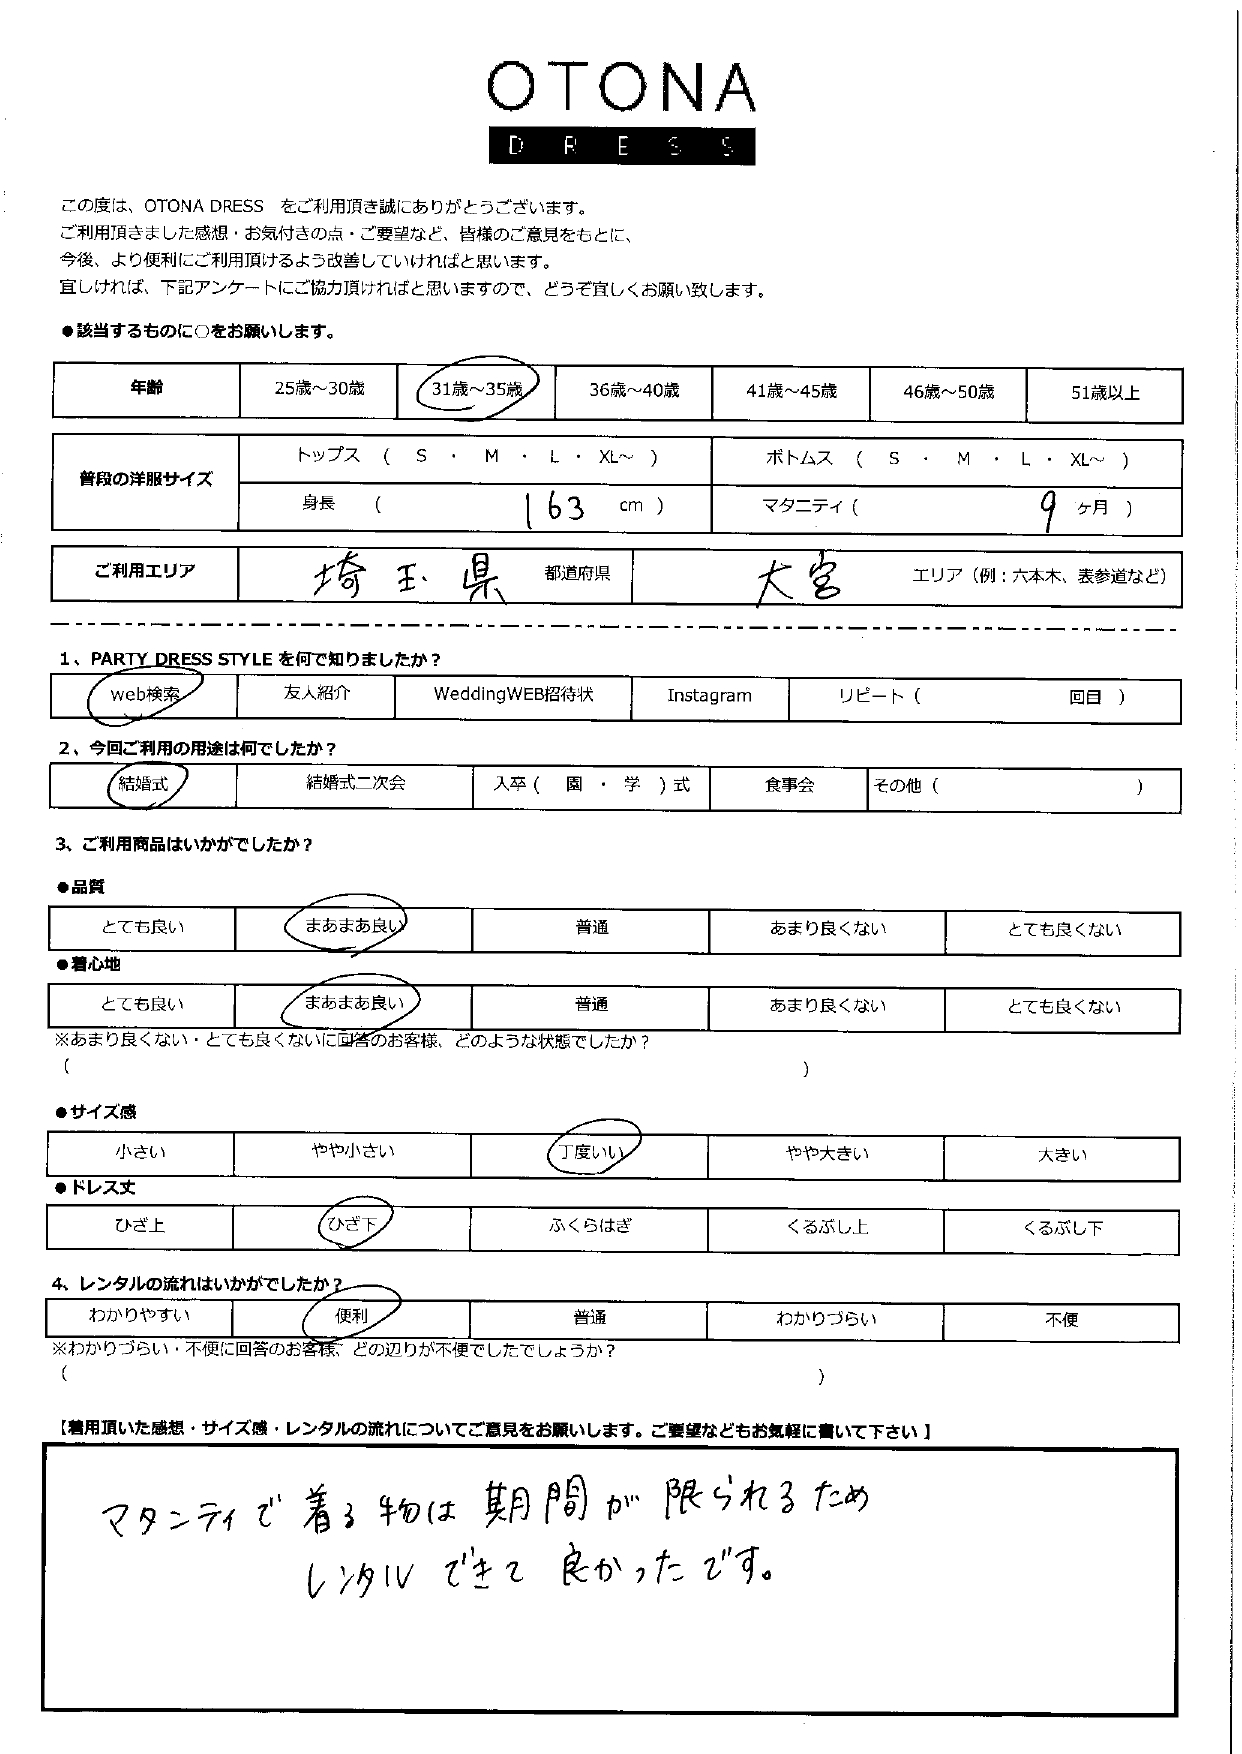 OTONA
DRESS
この度は、OTONA DRESS をご利用頂き誠にありがとうございます。
ご利用頂きました感想・お気付きの点・ご要望など、皆様のご意見をもとに、
今後、より便利にご利用頂けるよう改善していければと思います。
宜しければ、下記アンケートにご協力頂ければと思いますので、どうぞ宜しくお願い致します。
●該当するものに○をお願いします。
年齢 25歳～30歳 31歳～35歳 36歳～40歳 41歳～45歳 46歳～50歳 51歳以上
普段の洋服サイズ トップス ( S ・ M ・ L ・ XL～ ) ボトムス ( S ・ M ・ L ・ XL～ )
身長 ( 163 cm ) マタニティ ( 9 ヶ月 )
ご利用エリア 埼玉県 都道府県 大宮 エリア（例：六本木、表参道など）
1、PARTY DRESS STYLE を何で知りましたか？
web検索 友人紹介 WeddingWEB招待状 Instagram リピート ( 回目 )
2、今回ご利用の用途は何でしたか？
結婚式 結婚式二次会 入卒 ( 園 ・ 学 ) 式 食事会 その他 ( )
3、ご利用商品はいかがでしたか？
●品質
とても良い まあまあ良い 普通 あまり良くない とても良くない
●着心地
とても良い まあまあ良い 普通 あまり良くない とても良くない
※あまり良くない・とても良くないに回答のお客様、どのような状態でしたか？
( )
●サイズ感
小さい やや小さい 丁度いい やや大きい 大きい
●ドレス丈
ひざ上 ひざ下 ふくらはぎ くるぶし上 くるぶし下
4、レンタルの流れはいかがでしたか？
わかりやすい 便利 普通 わかりづらい 不便
※わかりづらい・不便に回答のお客様、どの辺りが不便でしたでしょうか？
( )
【着用頂いた感想・サイズ感・レンタルの流れについてご意見をお願いします。ご要望などもお気軽に書いて下さい】
マタンティで着る物は期間が限られるため
レンタルできて良かったです。